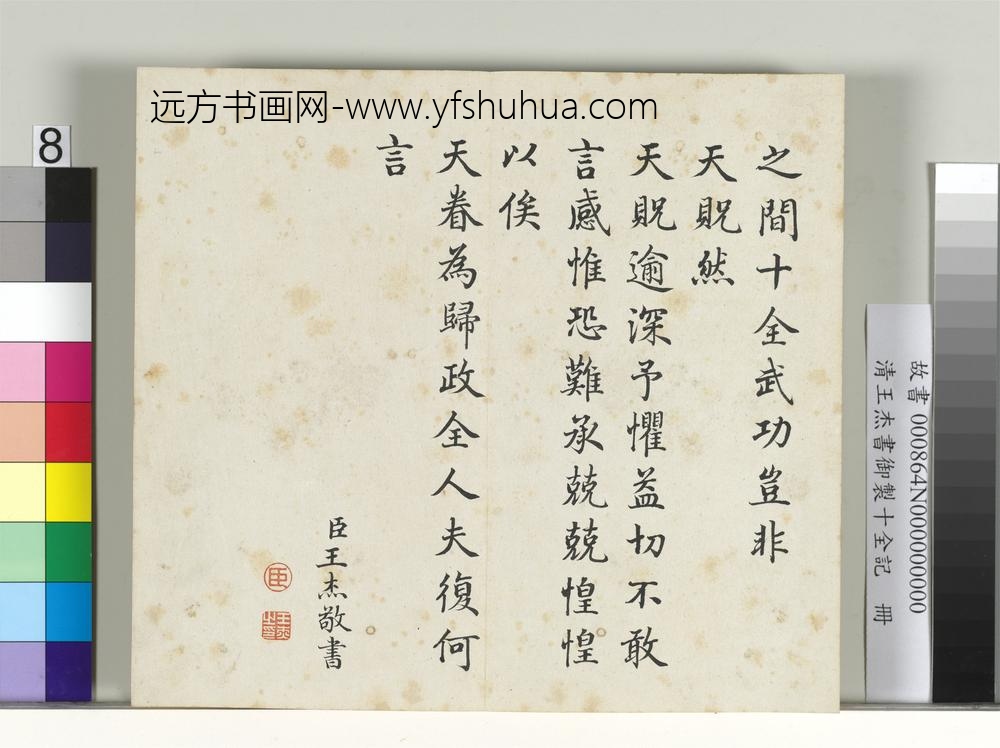 远方书画网-www.yfshuhua.com
之間十全武功豈非
天貺然
天貺逾深予懼益切不敢
言感惟恐難承兢兢惶惶
以俟
天眷為歸政全人夫復何
言
臣王杰敬書
臣
8
故書 000864N000000000
清王杰書御製十全記 冊